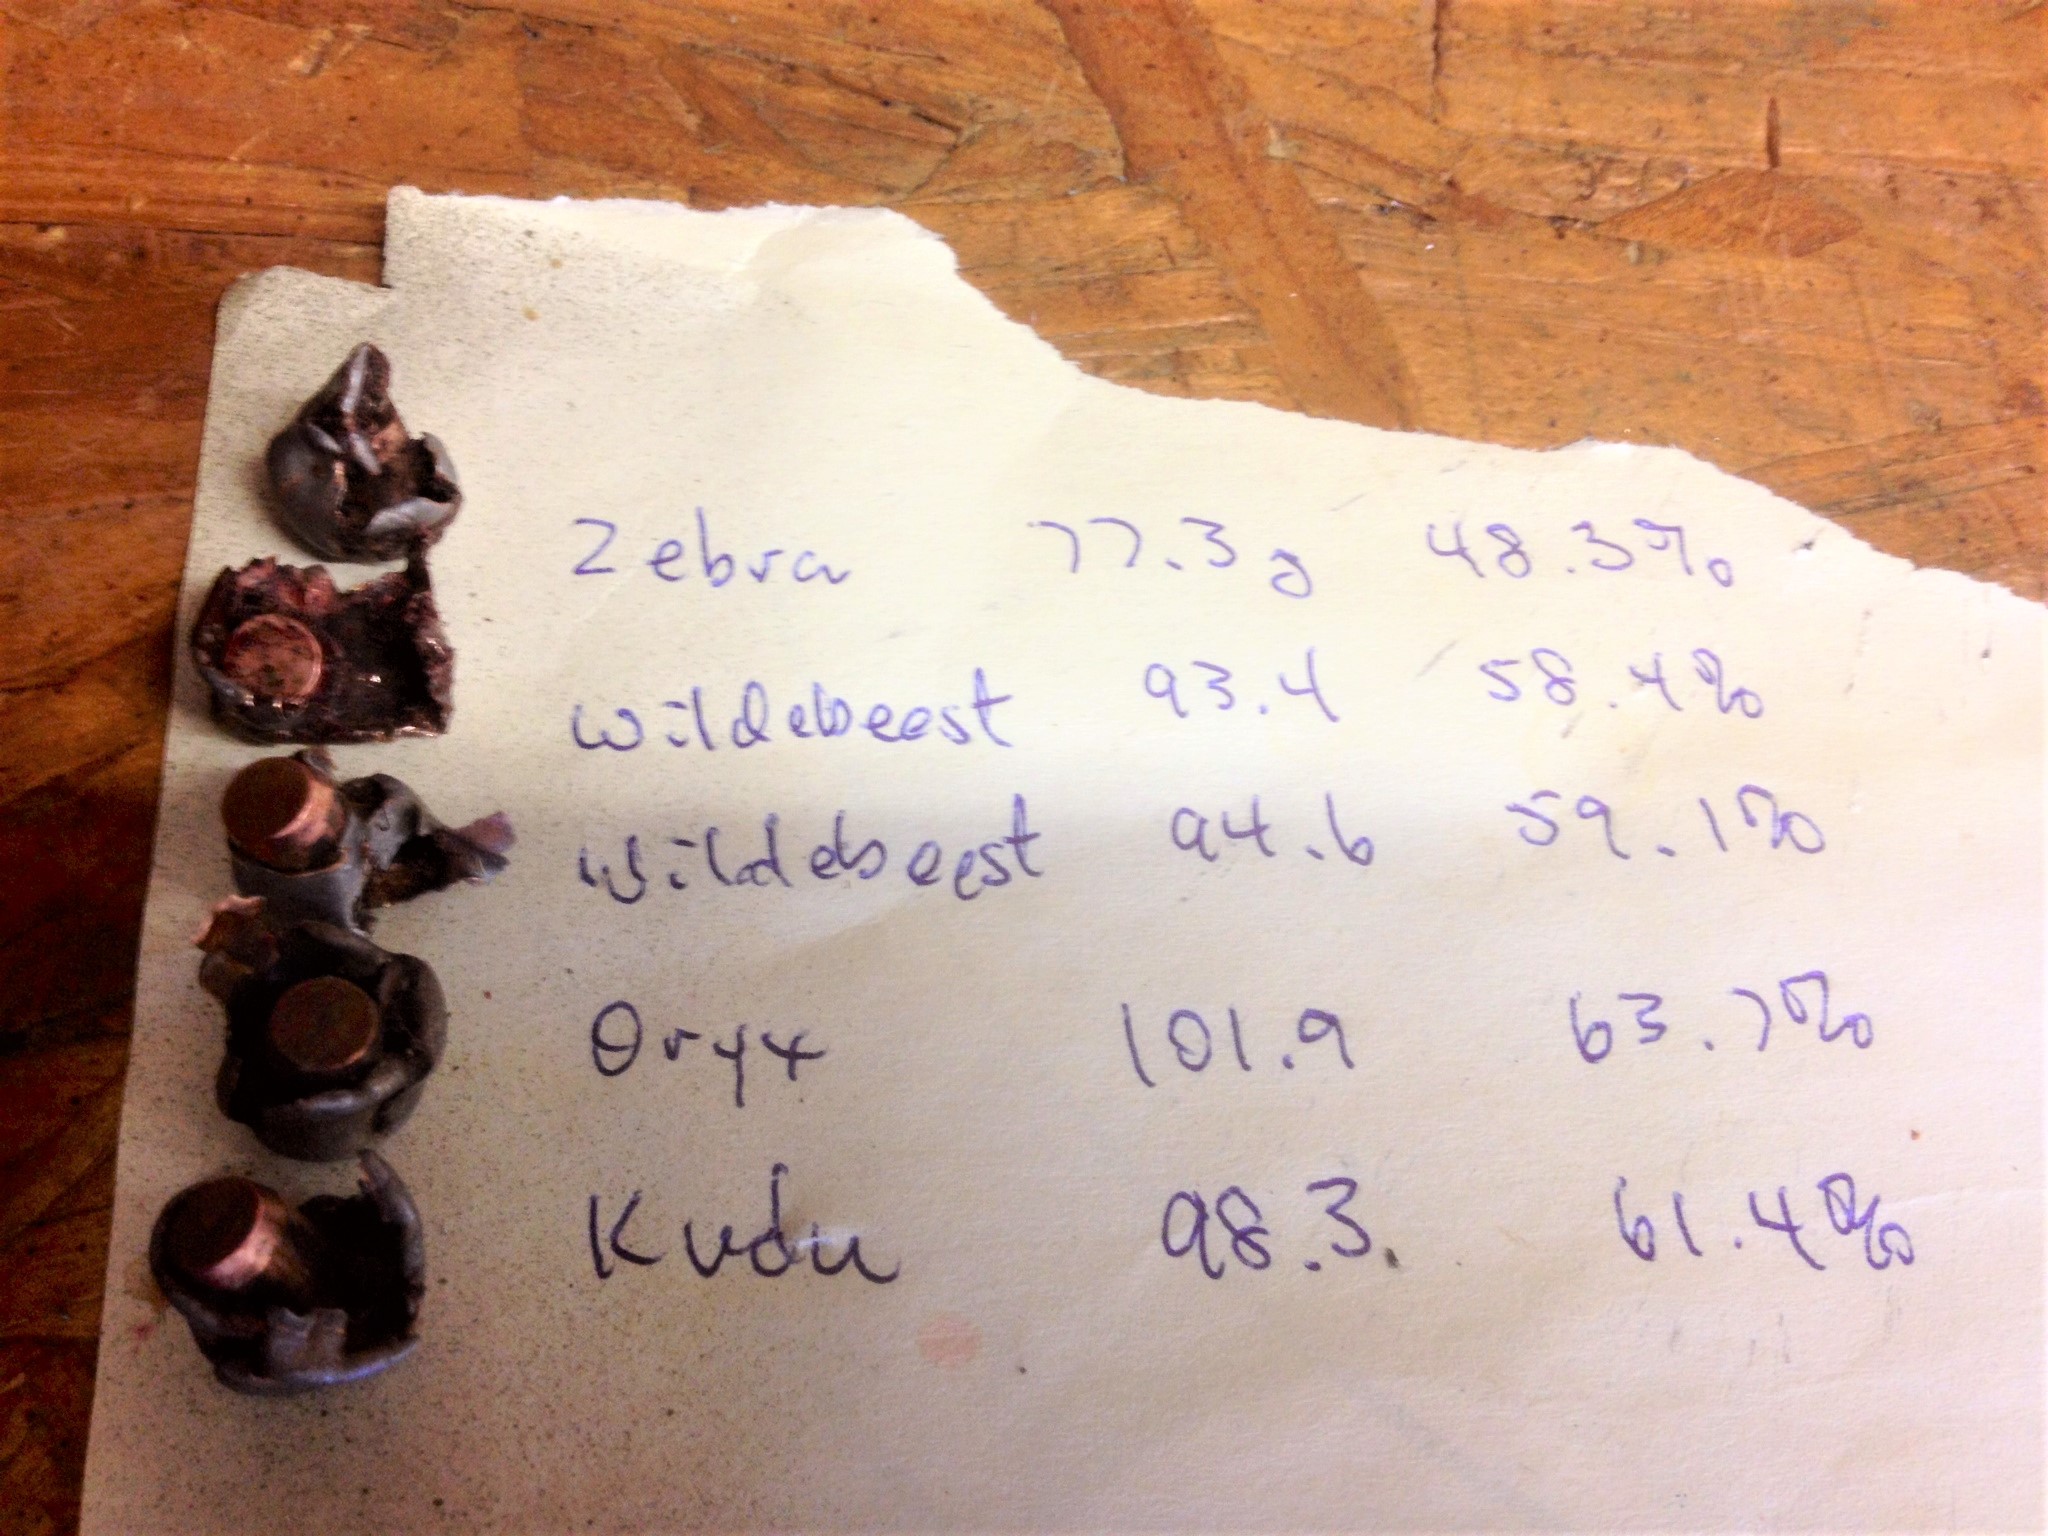 Zebra 77.3g 48.3%
wildebeest 93.4 58.4%
wildebeest 94.6 59.1%
Oryx 101.9 63.7%
Kudu 98.3. 61.4%